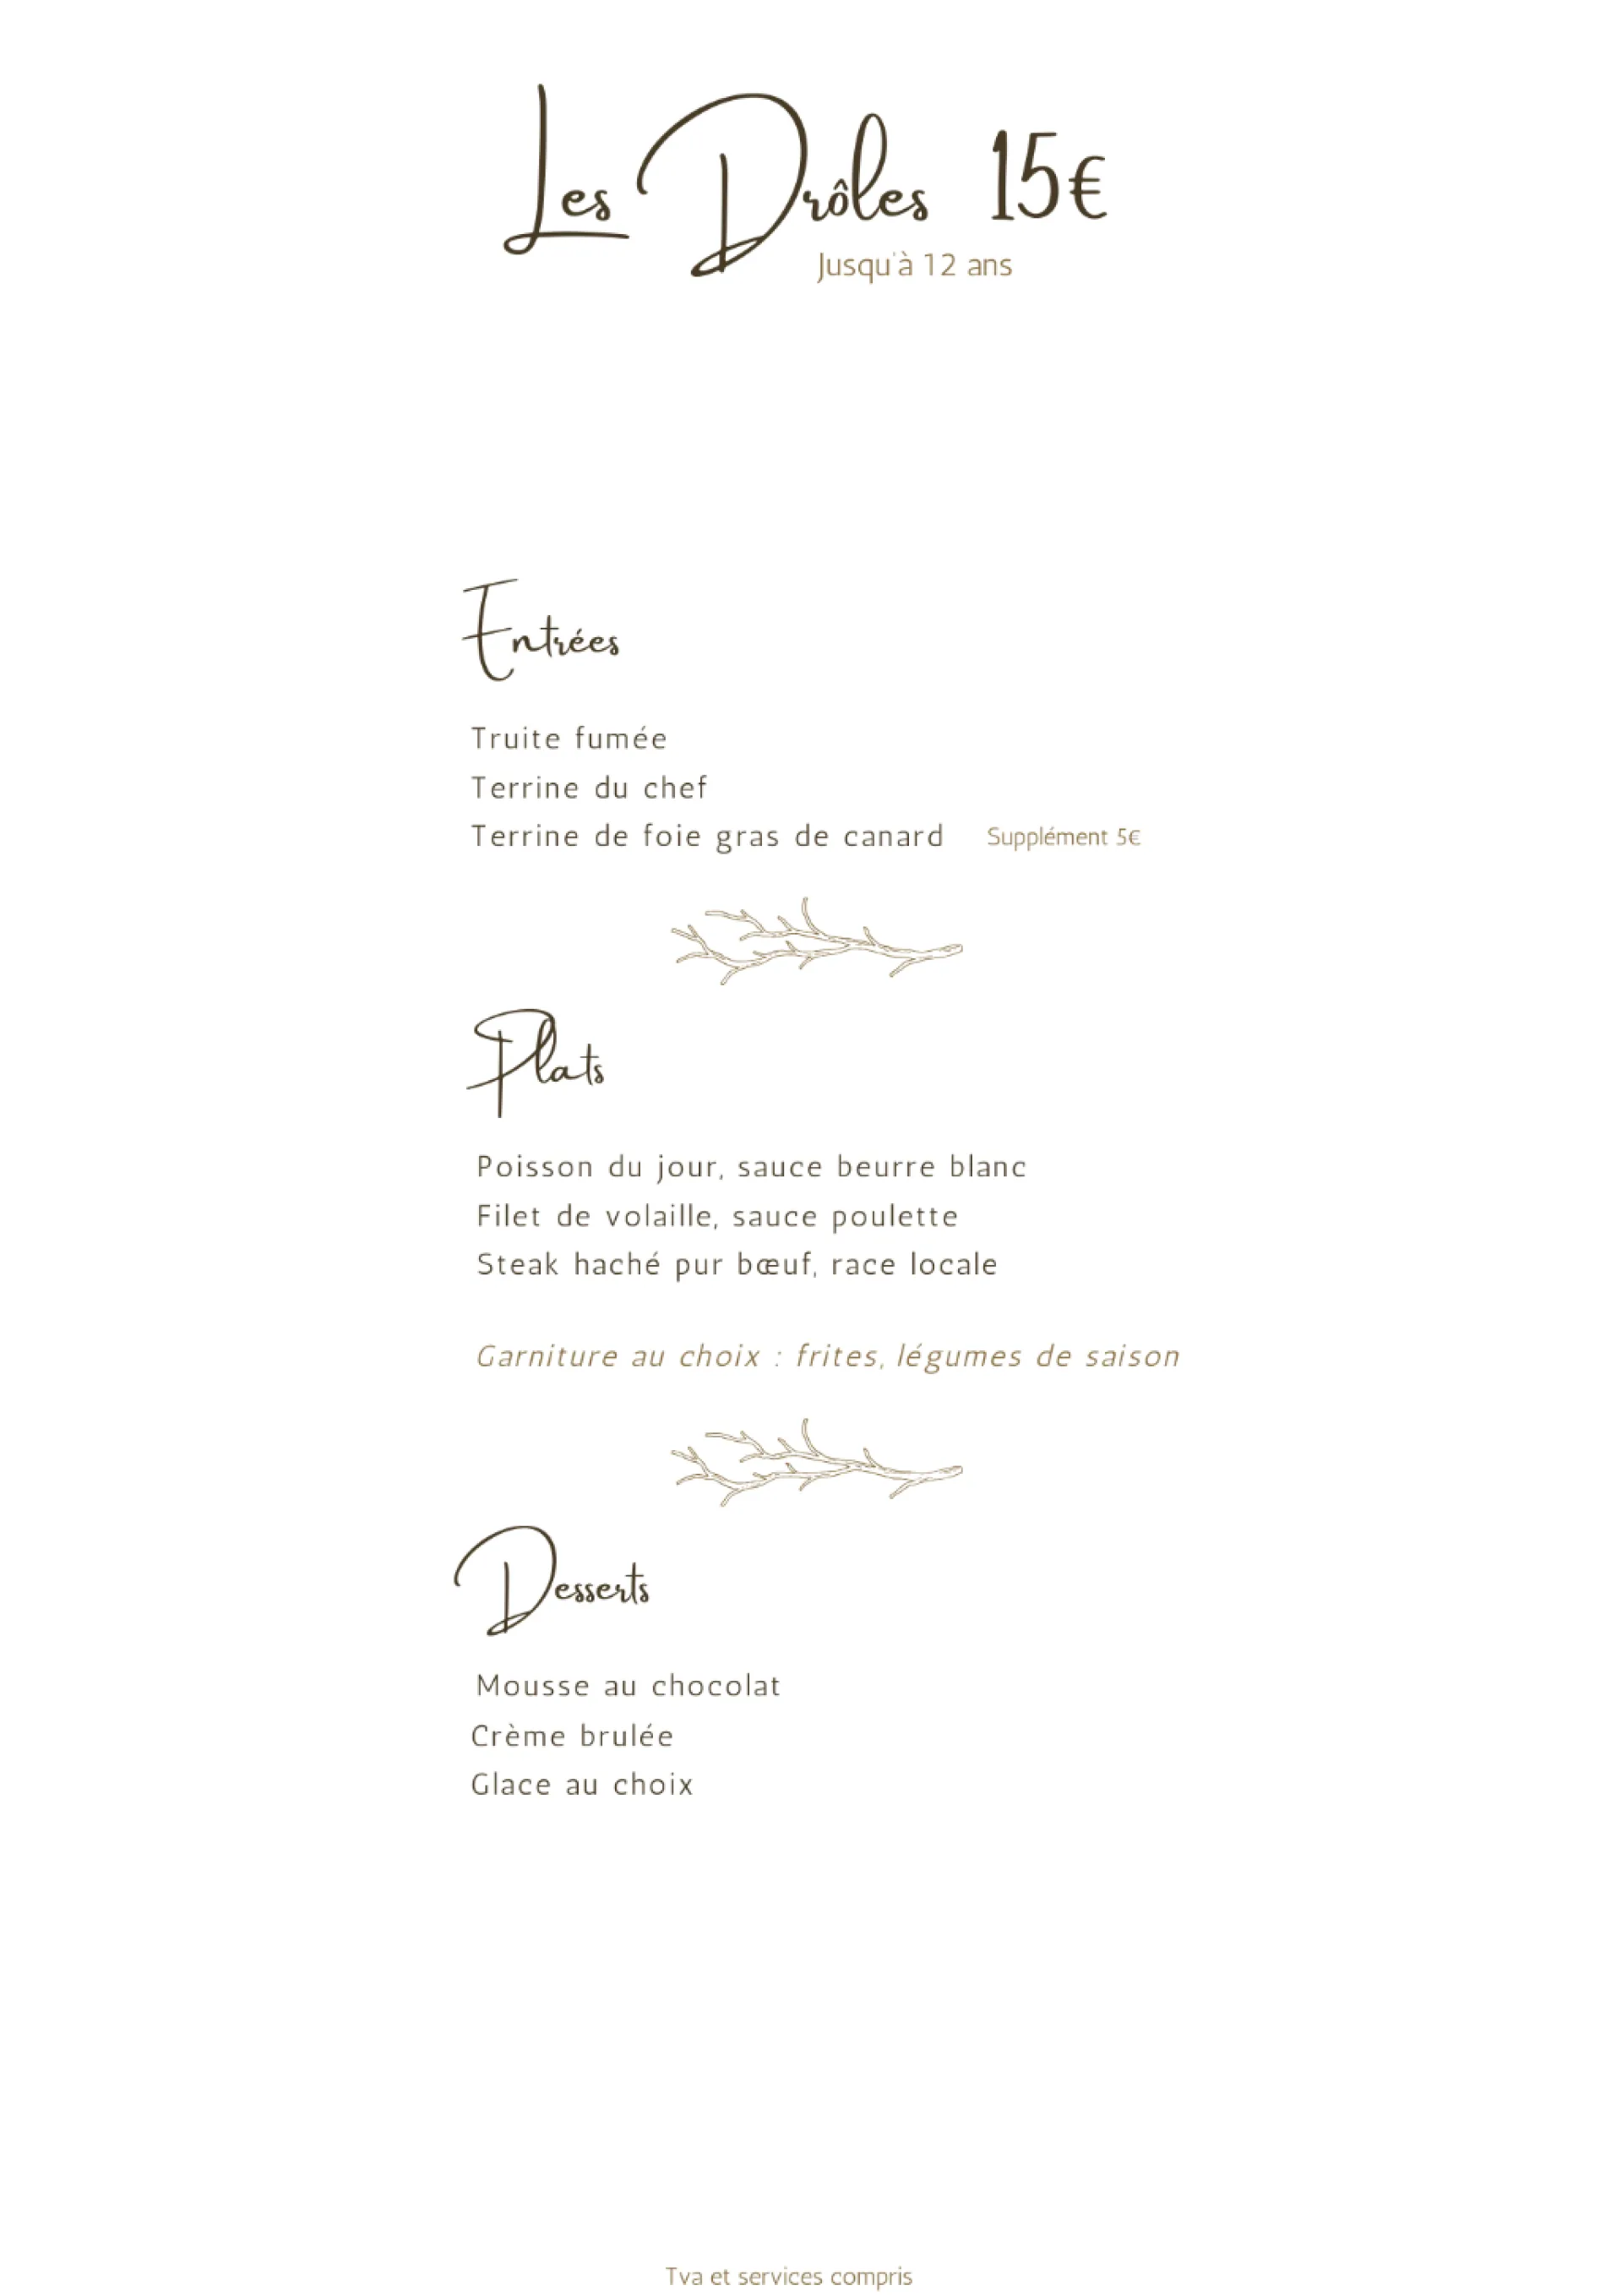 Les Drôles 15€
Jusqu'à 12 ans
Entrées
Truite fumée
Terrine du chef
Terrine de foie gras de canard Supplément 5€
Plats
Poisson du jour, sauce beurre blanc
Filet de volaille, sauce poulette
Steak haché pur bœuf, race locale
Garniture au choix : frites, légumes de saison
Desserts
Mousse au chocolat
Crème brulée
Glace au choix
Tva et services compris